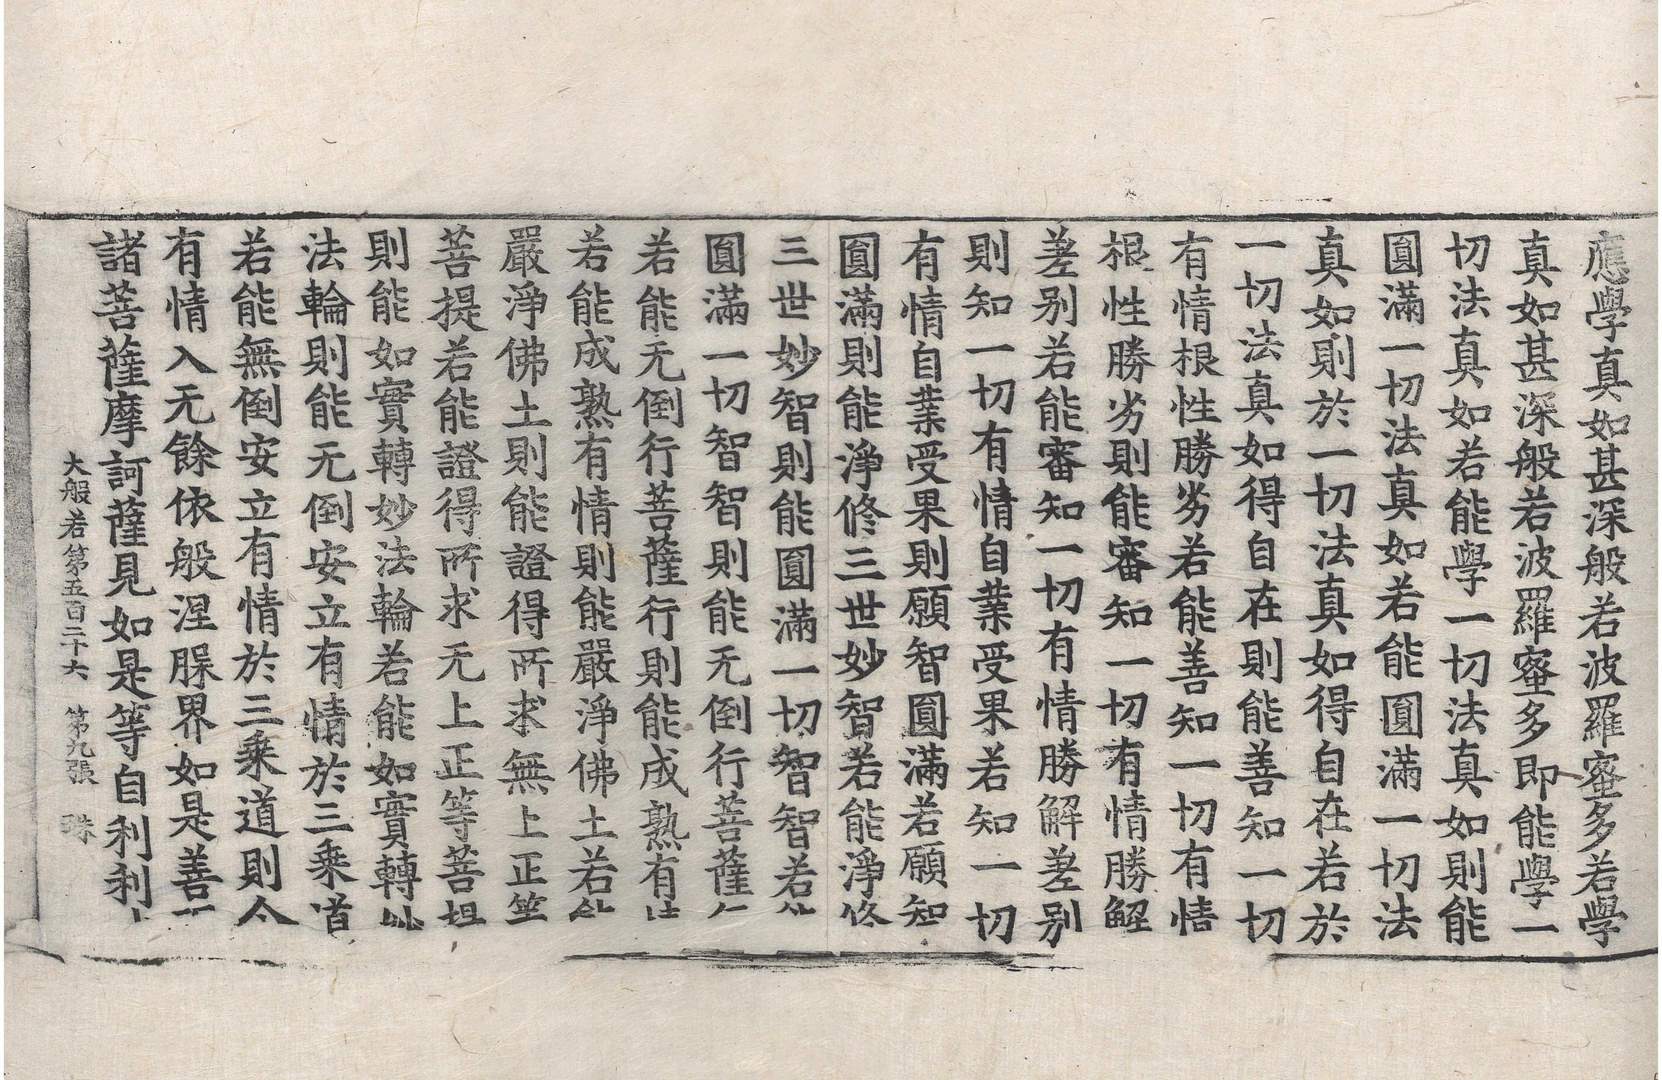 應學真如甚深般若波羅蜜多若學
真如甚深般若波羅蜜多即能學一
切法真如若能學一切法真如則能
圓滿一切法真如若能圓滿一切法
真如則於一切法真如得自在若於
一切法真如得自在則能善知一切
有情根性勝劣若能善知一切有情
根性勝劣則能審知一切有情勝解
差別若能審知一切有情勝解差別
則知一切有情自業受果若知一切
有情自業受果則願智圓滿若願智
圓滿則能淨修三世妙智若能淨修
三世妙智則能圓滿一切智智若能
圓滿一切智智則能无倒行菩薩行
若能无倒行菩薩行則能成熟有情
若能成熟有情則能嚴淨佛土若能
嚴淨佛土則能證得所求無上正等
菩提若能證得所求无上正等菩提
則能如實轉妙法輪若能如實轉妙
法輪則能无倒安立有情於三乘道
若能無倒安立有情於三乘道則令
有情入无餘依般涅槃界如是善
諸菩薩摩訶薩見如是等自利利
大般若第五百二十六 第九張 珠